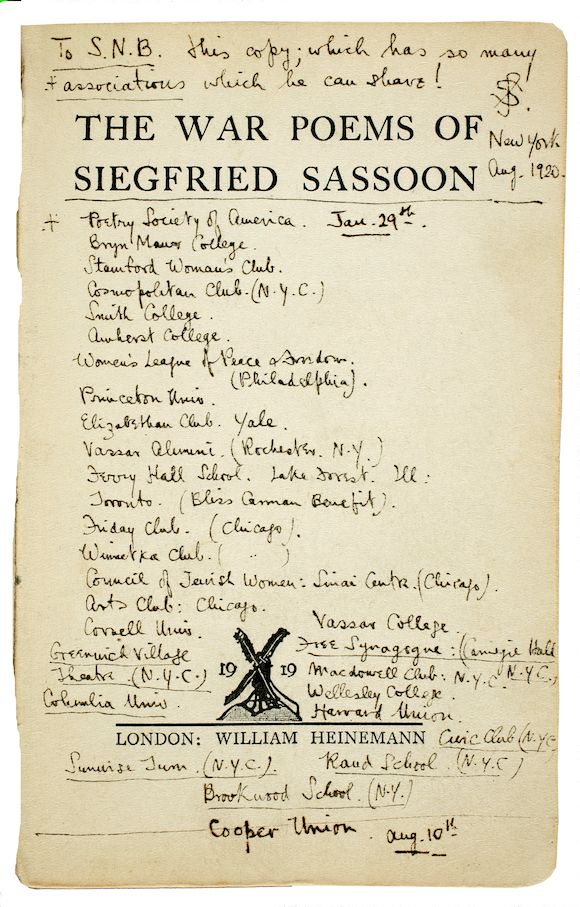 To S.N.B. this copy, which has so many
+ associations which he can share!
SS.
New York
Aug. 1920.
THE WAR POEMS OF
SIEGFRIED SASSOON
+ Poetry Society of America. Jan. 29th.
Bryn Mawr College.
Stamford Woman's Club.
Cosmopolitan Club. (N.Y.C.)
Smith College.
Amherst College.
Women's League of Peace & Freedom.
(Philadelphia).
Princeton Univ.
Elizabethan Club. Yale.
Vassar Alumni. (Rochester. N.Y.)
Ferry Hall School. Lake Forest. Ill:
Toronto. (Bliss Carman Benefit).
Friday Club. (Chicago).
Winnetka Club. ( " )
Council of Jewish Women: Sinai Centre. (Chicago).
Arts Club: Chicago.
Cornell Univ.
Greenwich Village
Theatre. (N.Y.C.)
Columbia Univ.
Vassar College.
Free Synagogue: (Carnegie Hall
N.Y.C.)
Macdowell Club: N.Y.C.
Wellesley College.
Harvard Union.
19 19
LONDON: WILLIAM HEINEMANN
Civic Club (N.Y.C)
Sunwise Turn. (N.Y.C.). Rand School. (N.Y.C)
Brookwood School. (N.Y.)
Cooper Union. Aug. 10th